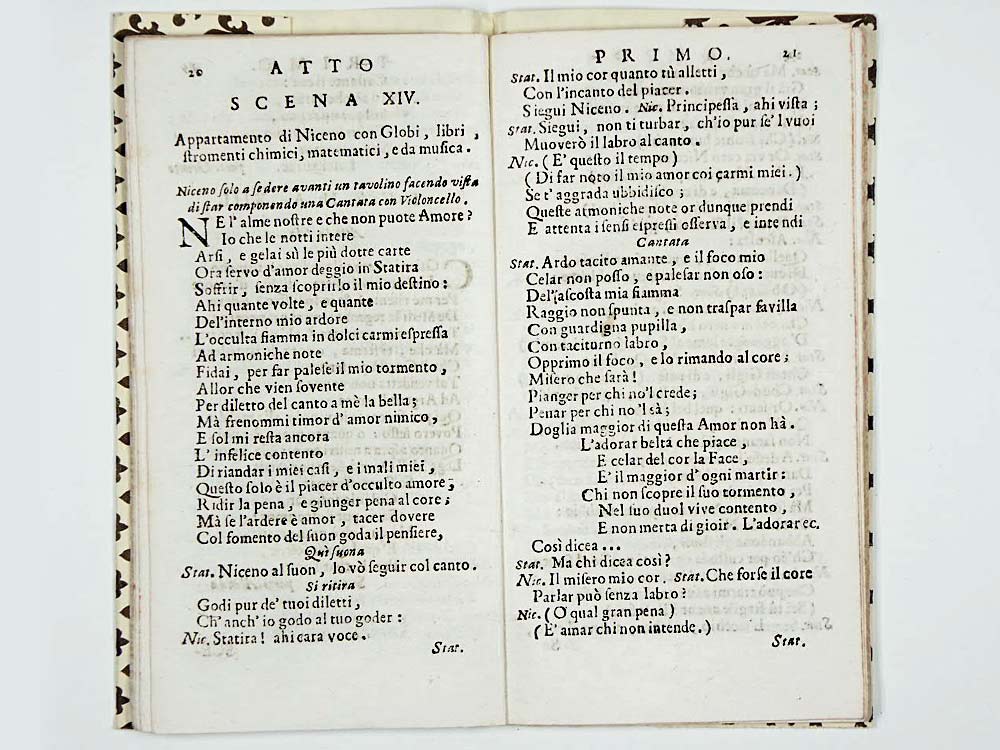 20 ATTO
SCENA XIV.
Appartamento di Niceno con Globi, libri,
ſtromenti chimici, matematici, e da muſica.
Niceno ſolo a ſedere avanti un tavolino facendo viſta
di ſtar componendo una Cantata con Violoncello.
NE l'alme noſtre e che non puote Amore?
Io che le notti intere
Arſi, e gelai sù le più dotte carte
Ora ſervo d'amor deggio in Statira
Soffrir, ſenza ſcoprirlo il mio deſtino:
Ahi quante volte, e quante
Del'interno mio ardore
L'occulta fiamma in dolci carmi eſpreſſa
Ad armoniche note
Fidai, per far paleſe il mio tormento,
Allor che vien ſovente
Per diletto del canto a mè la bella;
Mà frenommi timor d'amor nimico,
E ſol mi reſta ancora
L'infelice contento
Di riandar i miei caſi, e i mali miei,
Queſto ſolo è il piacer d'occulto amore,
Ridir la pena, e giunger pena al core;
Mà ſe l'ardere è amor, tacer dovere
Col fomento del ſuon goda il penſiere,
Quì ſuona
Stat. Niceno al ſuon, lo vò ſeguir col canto.
Si ritira
Godi pur de' tuoi diletti,
Ch'anch'io godo al tuo goder:
Nic. Statira! ahi cara voce.
Stat.
PRIMO. 21
Stat. Il mio cor quanto tù alletti,
Con l'incanto del piacer.
Siegui Niceno. Nic. Principeſſa, ahi viſta;
Stat. Siegui, non ti turbar, ch'io pur ſe'l vuoi
Muoverò il labro al canto.
Nic. (E' queſto il tempo)
(Di far noto il mio amor coi carmi miei.)
Se t'aggrada ubbidiſco;
Queſte armoniche note or dunque prendi
E attenta i ſenſi eſpreſſi oſſerva, e intendi
Cantata
Stat. Ardo tacito amante, e il foco mio
Celar non poſſo, e paleſar non oſo:
Del'aſcoſta mia fiamma
Raggio non ſpunta, e non traſpar favilla
Con guardigna pupilla,
Con taciturno labro,
Opprimo il foco, e lo rimando al core;
Miſero che ſarà!
Pianger per chi no'l crede;
Penar per chi no'l sà;
Doglia maggior di queſta Amor non hà.
L'adorar beltà che piace,
E celar del cor la Face,
E' il maggior d'ogni martir:
Chi non ſcopre il ſuo tormento,
Nel ſuo duol vive contento,
E non merta di gioir. L'adorar ec.
Così dicea...
Stat. Ma chi dicea così?
Nic. Il miſero mio cor. Stat. Che forſe il core
Parlar può ſenza labro?
Nic. (O qual gran pena)
(E' amar chi non intende.)
Stat.